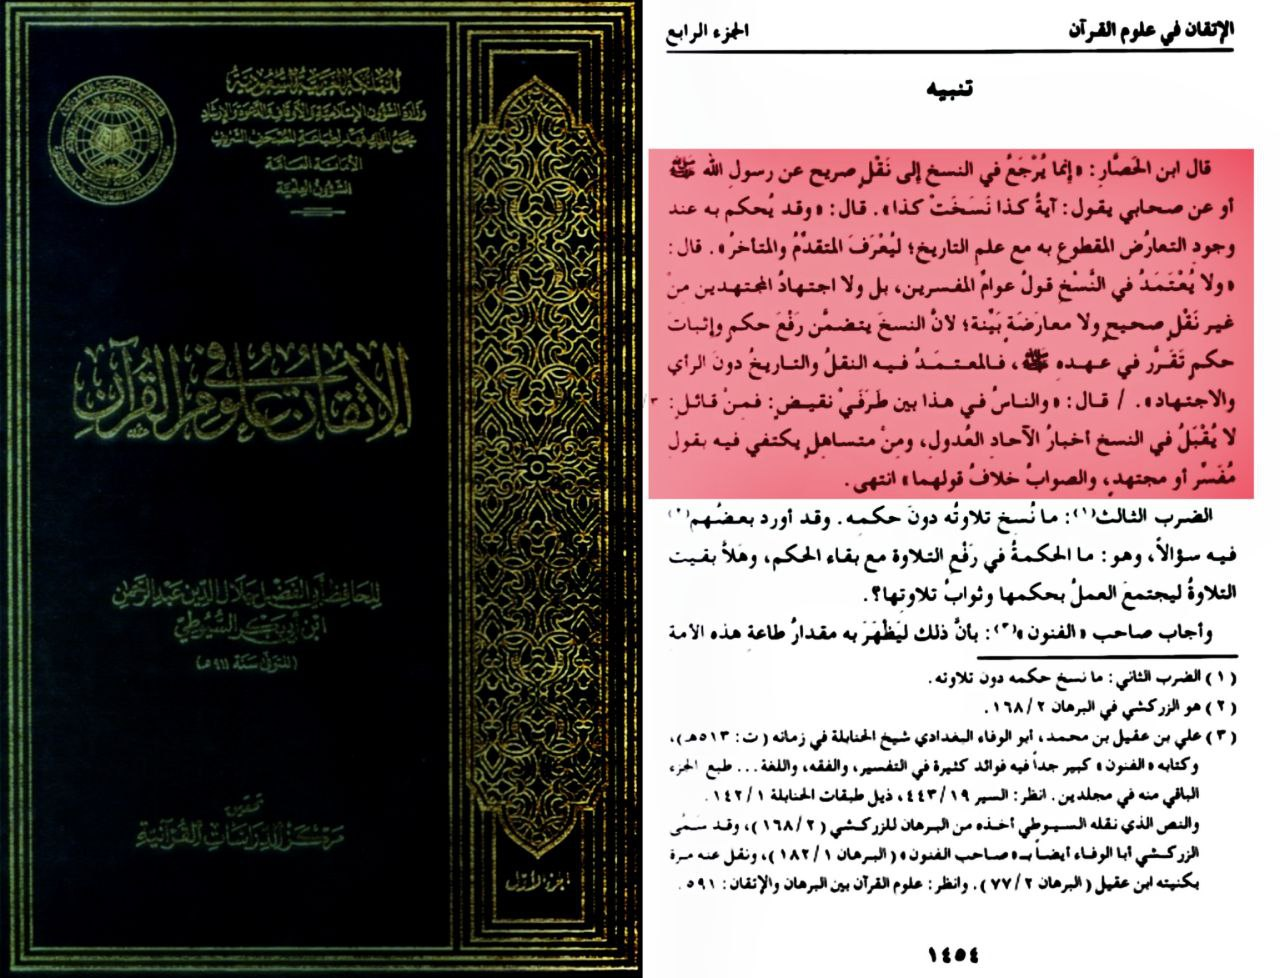 المملكة العربية السعودية
وزارة الشؤون الإسلامية والأوقاف والدعوة والإرشاد
مجمع الملك فهد لطباعة المصحف الشريف
الأمانة العامة
الشؤون العلمية
الإتقان في علوم القرآن
للحافظ أبي الفضل جلال الدين عبد الرحمن
ابن أبي بكر السيوطي
(المتوفى سنة ٩١١هـ)
تحقيق
مركز الدراسات القرآنية
الجزء الأول
الإتقان في علوم القرآن
الجزء الرابع
تنبيه
قال ابن الحَصَّار: «إنما يُرْجَعُ في النسخ إلى نَقْلٍ صريح عن رسول الله ﷺ
أو عن صحابي يقول: آيةُ كذا نَسَخَتْ كذا». قال: «وقد يُحكم به عند
وجودِ التعارُض المقطوعِ به مع علمِ التاريخ؛ ليُعْرَفَ المتقدِّمُ والمتأخرُ». قال:
«ولا يُعْتَمَدُ في النَّسْخِ قولُ عوامِّ المفسرين، بل ولا اجتهادُ المجتهدين مِنْ
غير نَقْلٍ صحيح ولا معارَضَةٍ بَيِّنة؛ لأنَّ النسخَ يتضمَّن رَفْعَ حكمٍ وإثباتَ
حكمٍ تَقَرَّر في عهدِه ﷺ، فالمعتمَدُ فيه النقلُ والتاريخُ دونَ الرأي
والاجتهاد». / قال: «والناسُ في هذا بين طَرَفَيْ نقيضٍ: فمِنْ قائلٍ:
٣ /
لا يُقْبَلُ في النسخ أخبارُ الآحادِ العُدولِ، ومِنْ متساهلٍ يكتفي فيه بقول
مُفَسِّرٍ أو مجتهدٍ، والصوابُ خلافُ قولهما» انتهى.
الضرب الثالث(١): ما نُسخ تلاوتُه دونَ حكمه. وقد أورد بعضُهم(٢)
فيه سؤالاً، وهو: ما الحكمةُ في رَفْعِ التلاوة مع بقاء الحكم، وهَلاَّ بقيت
التلاوةُ ليجتمعَ العملُ بحكمها وثوابُ تلاوتِها؟.
وأجاب صاحب «الفنون»(٣): بأنَّ ذلك ليَظْهَرَ به مقدارُ طاعةِ هذه الأمة
(١) الضرب الثاني: ما نسخ حكمه دون تلاوته.
(٢) هو الزركشي في البرهان ٢/ ١٦٨.
(٣) علي بن عقيل بن محمد، أبو الوفاء البغدادي شيخ الحنابلة في زمانه (ت: ٥١٣هـ)،
وكتابه «الفنون» كبير جداً فيه فوائد كثيرة في التفسير، والفقه، واللغة... طبع الجزء
الباقي منه في مجلدين. انظر: السير ١٩/ ٤٤٣، ذيل طبقات الحنابلة ١/ ١٤٢.
والنص الذي نقله السيوطي أخذه من البرهان للزركشي (٢/ ١٦٨)، وقد سَمَّى
الزركشي أبا الوفاء أيضاً بـ«صاحب الفنون» (البرهان ١/ ١٨٢)، ونقل عنه مرة
بكنيته ابن عقيل (البرهان ٢/ ٧٧). وانظر: علوم القرآن بين البرهان والإتقان: ٥٩١.
١٤٥٤